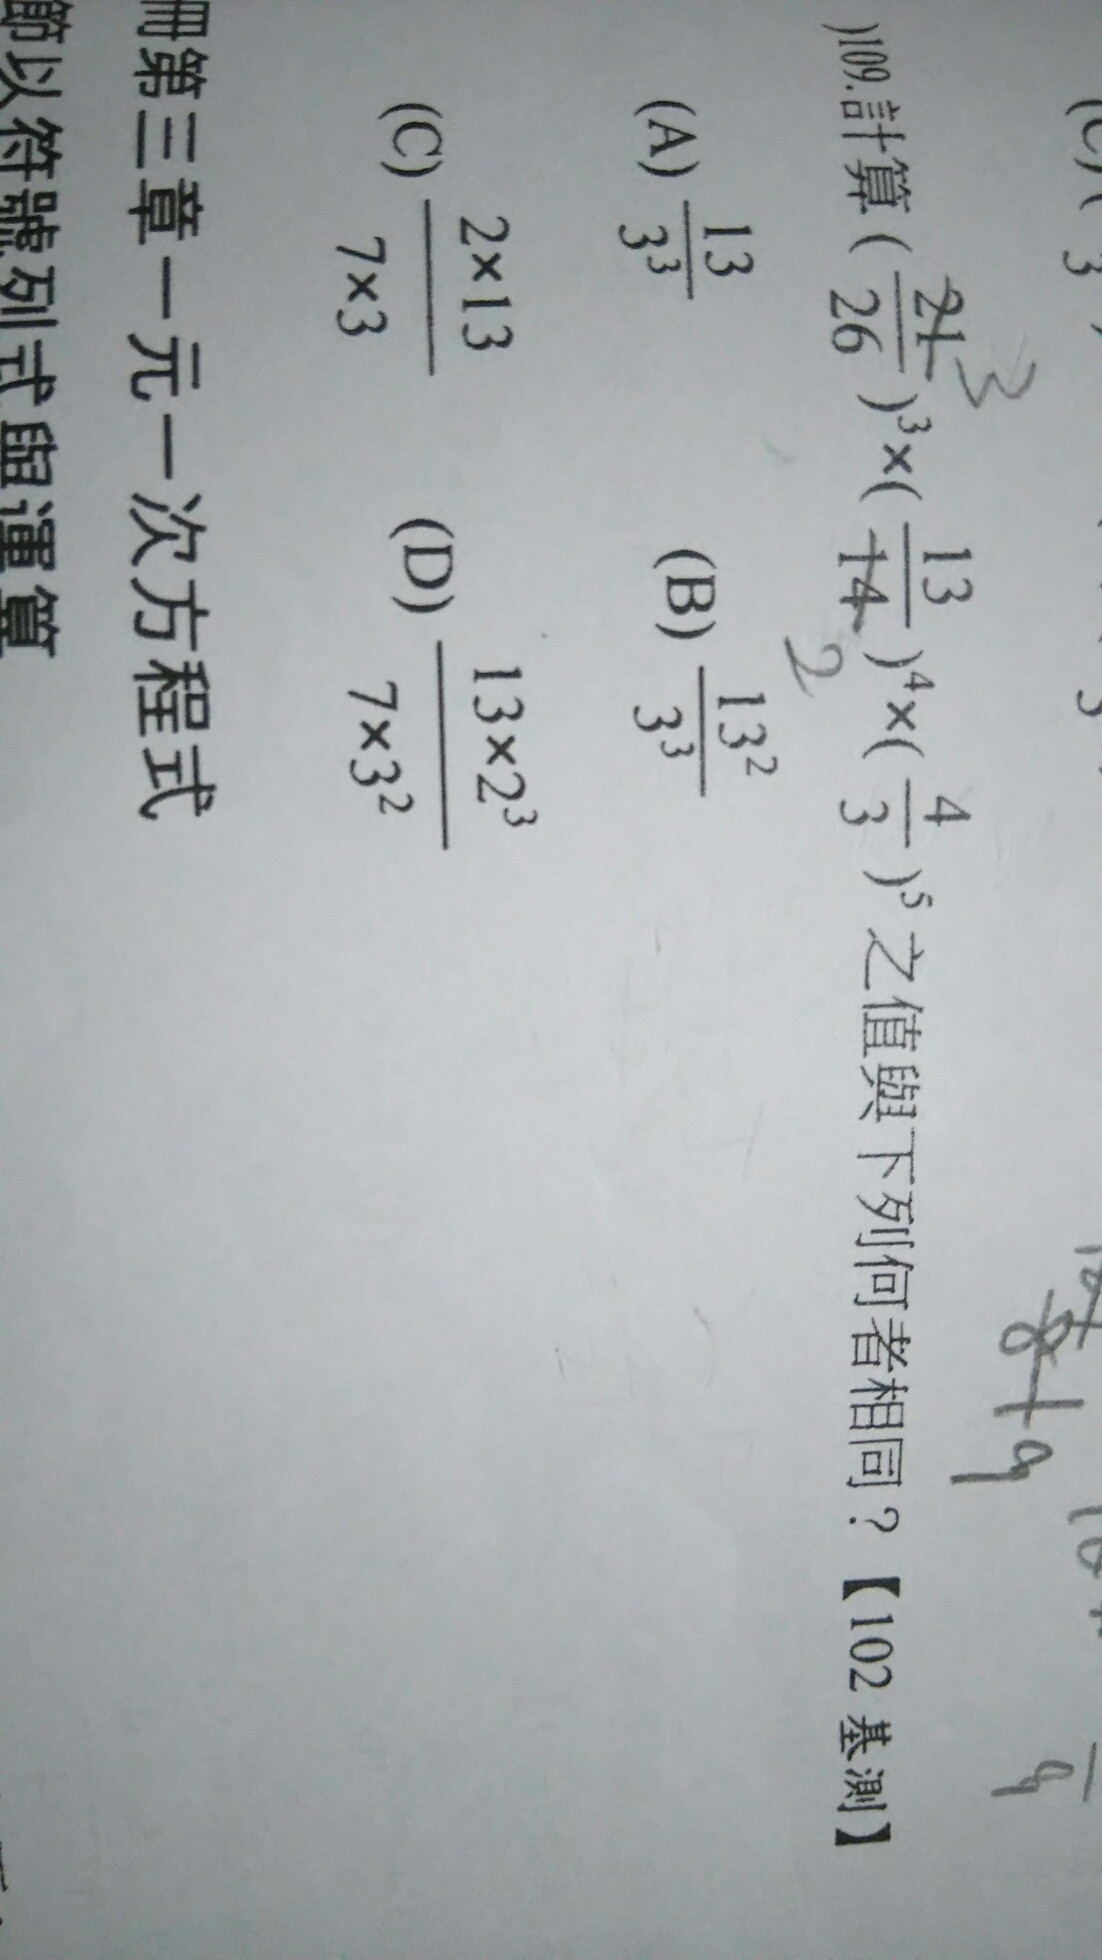 )109.計算 ( 21/26 )³×( 13/14 )⁴×( 4/3 )⁵ 之值與下列何者相同？【102 基測】
3
2
(A) 13/3³ (B) 13²/3³
(C) 2×13/7×3 (D) 13×2³/7×3²
冊第三章一元一次方程式
節以符號列式與運算